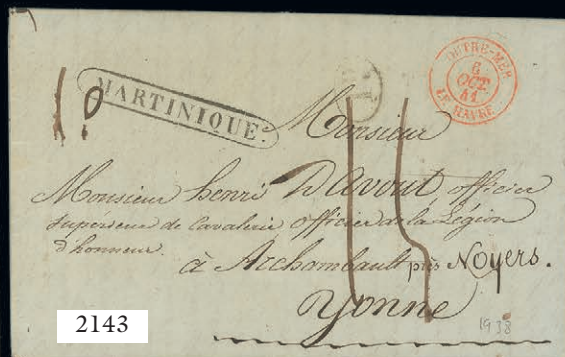 MARTINIQUE.
OUTRE-MER
6
OCT.
41
LE HAVRE
Monsieur
Monsieur henri Davout officier
supérieur de Cavalerie officier de la Légion
d'honneur.
à Archambault près Noyers.
Yonne
2143
1938